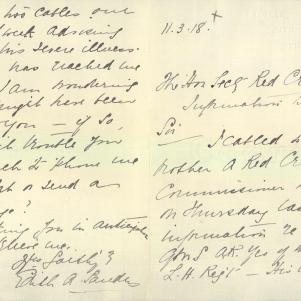 two cables one
week advising
his severe illness.
has reached me
I am wondering
might have been
you — if so,
trouble you
to 'phone me
or send a
?
you in anticipation
Believe me
Yrs faithy
Edith A. Saunders
11.3.18.
The Hon Secy Red Cr
Information
Sir
— I cabled
brother A Red Cr
Commissioner
on Thursday las
information re
Gnr S AR. Yeo of
L.H. Regt — His